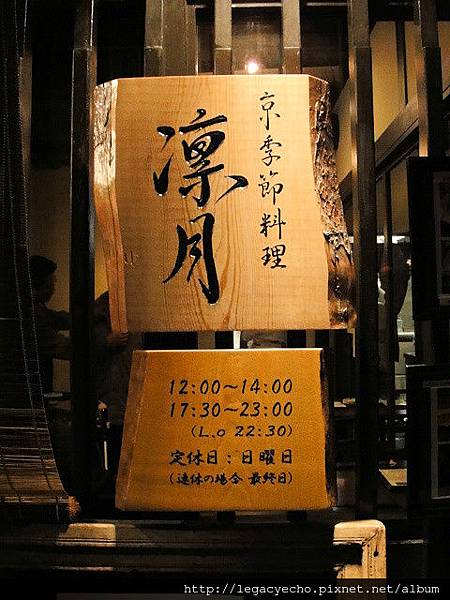 京季節料理
凛月
12:00〜14:00
17:30〜23:00
(L.o 22:30)
定休日：日曜日
(連休の場合 最終日)
http://legacyecho.pixnet.net/album